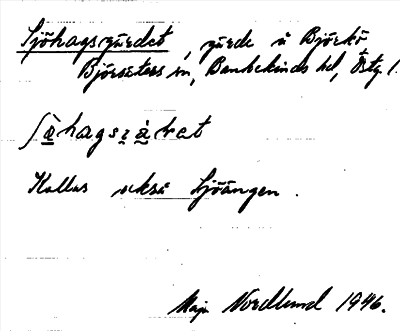 Sjöhagsgärdet, gärde å Björkö
Björsäters sn, Bankekinds hd, Östg l.
Kallas också Sjöängen.
Maja Nordlund 1946.